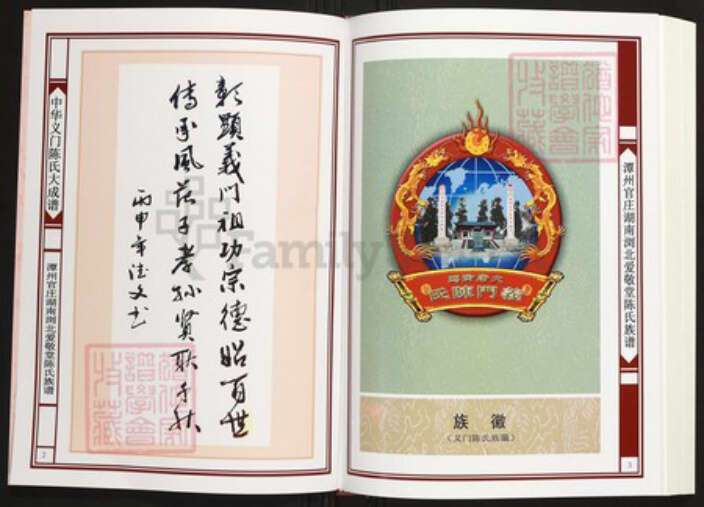 彰顯義门祖功宗德昭百世
传承風范子孝孙贤耿千秋
丙申年德文书
中华义门陈氏大成谱
潭州官庄湖南浏北爱敬堂陈氏族谱
2
Family
義門陳氏
族 徽
（义门陈氏族徽）
潭州官庄湖南浏北爱敬堂陈氏族谱
3